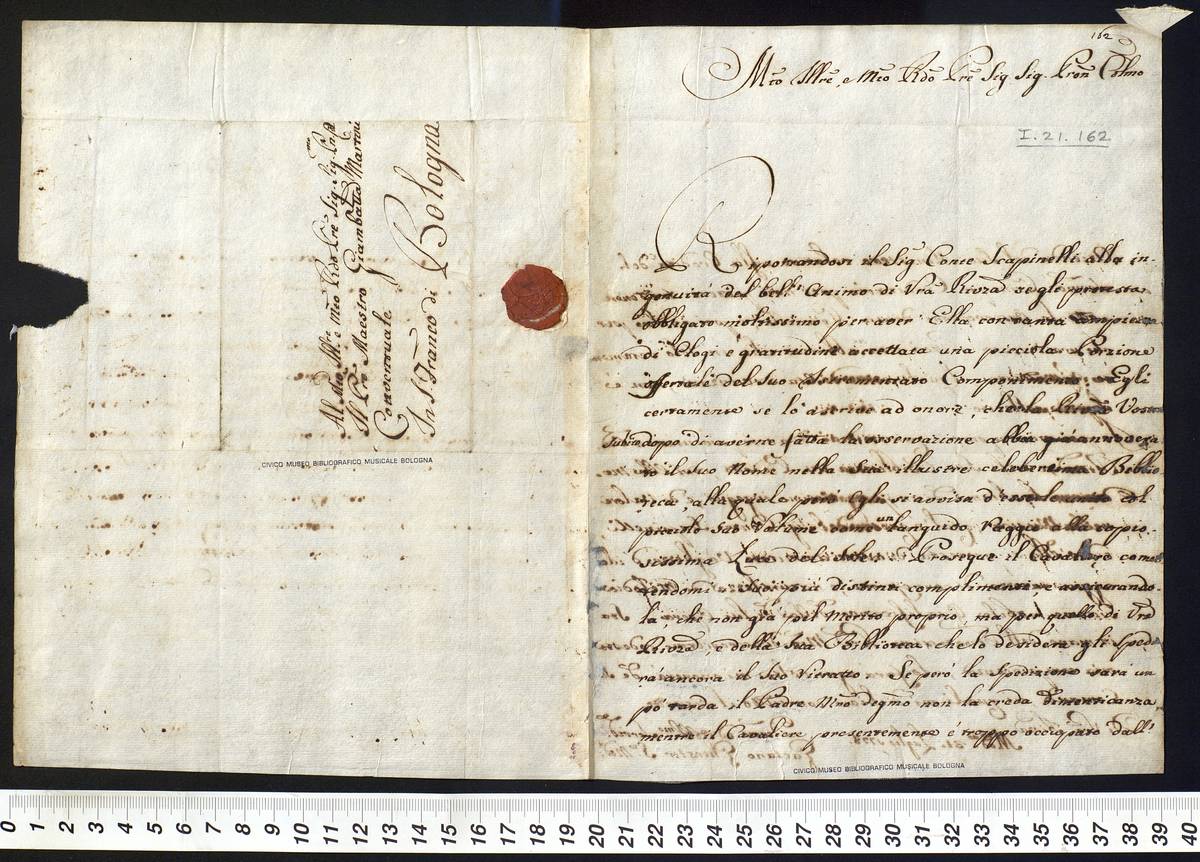 Al Mto Illre e Mto Rdo Pre Sig. Sig. Pron
Il Pre Maestro Giambatta Martini
Conventuale
In S. Franco di Bologna
CIVICO MUSEO BIBLIOGRAFICO MUSICALE BOLOGNA
162
Mto Illre, e Mto Rdo Pre Sig Sig. Pron Colmo
I. 21. 162
Riportandosi il Sig. Conte Scapinelli alla in-
genuità del bell' Animo di Vrã Rivza se gle protesta
obbligato moltissimo per aver Ella con tanta
di Elogi e gratitudine accettata una picciola Porzione
offertale del Suo Istromentato Componimento Egli
certamente se lo ascrive ad onore che la Vostra
Subito dopo di averne fatta la osservazione abbia già annovera
to il Suo Nome nella Sua illustre celeberrima Biblio
teca, alla quale però Egli si avvisa d'essere unito col
piccolo Suo Volume come un languido Raggio alla copio-
sissima Luce del Sole. Prosegue il Cavaliere comet
tendomi i Suoi più distinti complimenti, e assicurando-
la, che non già pel merito proprio, ma per quello di Vrã
Rivza e della Sua Biblioteca che lo desidera gli Sped
rà ancora il Suo Ritratto. Se però la Spedizione sarà un
pò tarda il Padre Mro degmo non la creda dimenticanza
mentre il Cavaliere presentemente è troppo occupato dall'
CIVICO MUSEO BIBLIOGRAFICO MUSICALE BOLOGNA
0 1 2 3 4 5 6 7 8 9 10 11 12 13 14 15 16 17 18 19 20 21 22 23 24 25 26 27 28 29 30 31 32 33 34 35 36 37 38 39 40